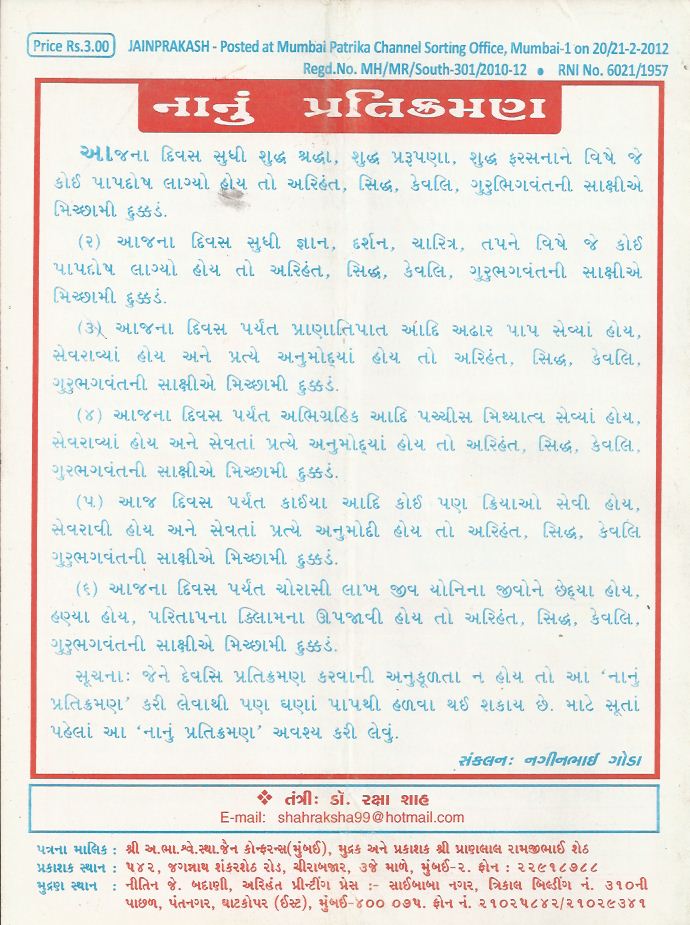 Price Rs.3.00 JAINPRAKASH - Posted at Mumbai Patrika Channel Sorting Office, Mumbai-1 on 20/21-2-2012
Regd.No. MH/MR/South-301/2010-12 • RNI No. 6021/1957
નાનું પ્રતિક્રમણ
આજના દિવસ સુધી શુદ્ધ શ્રદ્ધા, શુદ્ધ પ્રરૂપણા, શુદ્ધ ફરસનાને વિષે જે
કોઈ પાપદોષ લાગ્યો હોય તો અરિહંત, સિદ્ધ, કેવલિ, ગુરુભગવંતની સાક્ષીએ
મિચ્છામી દુક્કડં.
(૨) આજના દિવસ સુધી જ્ઞાન, દર્શન, ચારિત્ર, તપને વિષે જે કોઈ
પાપદોષ લાગ્યો હોય તો અરિહંત, સિદ્ધ, કેવલિ, ગુરુભગવંતની સાક્ષીએ
મિચ્છામી દુક્કડં.
(૩) આજના દિવસ પર્યંત પ્રાણાતિપાત આદિ અઢાર પાપ સેવ્યાં હોય,
સેવરાવ્યાં હોય અને પ્રત્યે અનુમોદ્યાં હોય તો અરિહંત, સિદ્ધ, કેવલિ,
ગુરુભગવંતની સાક્ષીએ મિચ્છામી દુક્કડં.
(૪) આજના દિવસ પર્યંત અભિગ્રહિક આદિ પચ્ચીસ મિથ્યાત્વ સેવ્યાં હોય,
સેવરાવ્યાં હોય અને સેવતાં પ્રત્યે અનુમોદ્યાં હોય તો અરિહંત, સિદ્ધ, કેવલિ,
ગુરભગવંતની સાક્ષીએ મિચ્છામી દુક્કડં.
(૫) આજ દિવસ પર્યંત કાઈયા આદિ કોઈ પણ ક્રિયાઓ સેવી હોય,
સેવરાવી હોય અને સેવતાં પ્રત્યે અનુમોદી હોય તો અરિહંત, સિદ્ધ, કેવલિ
ગુરુભગવંતની સાક્ષીએ મિચ્છામી દુક્કડં.
(૬) આજના દિવસ પર્યંત ચોરાસી લાખ જીવ યોનિના જીવોને છેદ્યા હોય,
હણ્યા હોય, પરિતાપના કિલામના ઊપજાવી હોય તો અરિહંત, સિદ્ધ, કેવલિ,
ગુરુભગવંતની સાક્ષીએ મિચ્છામી દુક્કડં.
સૂચનાઃ જેને દેવસિ પ્રતિક્રમણ કરવાની અનુકૂળતા ન હોય તો આ ‘નાનું
પ્રતિક્રમણ’ કરી લેવાથી પણ ઘણાં પાપથી હળવા થઈ શકાય છે. માટે સૂતાં
પહેલાં આ ‘નાનું પ્રતિક્રમણ’ અવશ્ય કરી લેવું.
સંકલનઃ નગીનભાઈ ગોડા
❖ તંત્રીઃ ડૉ. રક્ષા શાહ
E-mail: shahraksha99@hotmail.com
પત્રના માલિક : શ્રી અ.ભા.શ્વે.સ્થા.જૈન કોન્ફરન્સ(મુંબઈ), મુદ્રક અને પ્રકાશક શ્રી પ્રાણલાલ રામજીભાઈ શેઠ
પ્રકાશક સ્થાન : ૫૪૨, જગન્નાથ શંકરશેઠ રોડ, ચીરાબજાર, ૩જે માળે, મુંબઈ-૨. ફોન : ૨૨૯૧૮૭૮૮
મુદ્રણ સ્થાન : નીતિન જે. બદાણી, અરિહંત પ્રીન્ટીંગ પ્રેસ :- સાઈબાબા નગર, ત્રિકાલ બિલ્ડીંગ નં. ૩૧૦ની
પાછળ, પંતનગર, ઘાટકોપર (ઈસ્ટ), મુંબઈ-૪૦૦ ૦૭૫. ફોન નં. ૨૧૦૨૫૮૪૨/૨૧૦૨૯૩૪૧